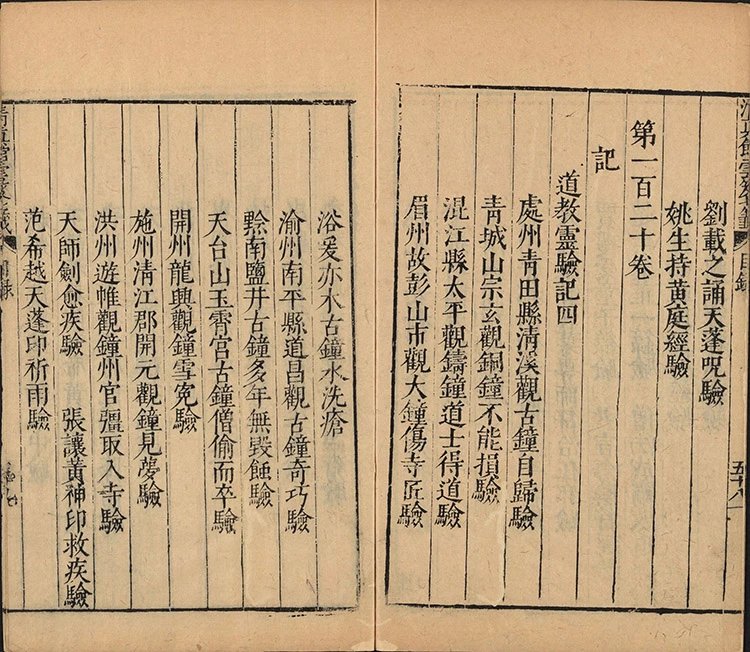 劉載之誦天蓬呪驗
姚生持黄庭經驗
第一百二十卷
記
道教靈驗記四
處州青田縣清溪觀古鐘自歸驗
青城山宗玄觀銅鐘不能損驗
混江縣太平觀鑄鐘道士得道驗
眉州故彭山市觀大鐘傷寺匠驗
浴爰亦木古鐘水洗瘡
渝州南平縣道昌觀古鐘奇巧驗
黔南鹽井古鐘多年無毀蝕驗
天台山玉霄宫古鐘僧偷而卒驗
開州龍興觀鐘雪寃驗
施州清江郡開元觀鐘見夢驗
洪州遊帷觀鐘州官彊取入寺驗
天師劍愈疾驗 張讓黄神印救疾驗
范希越天蓬印祈雨驗